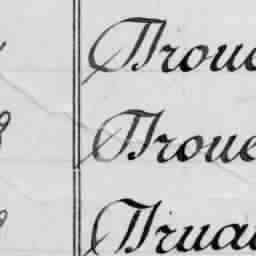 Trou
Troue
Trua